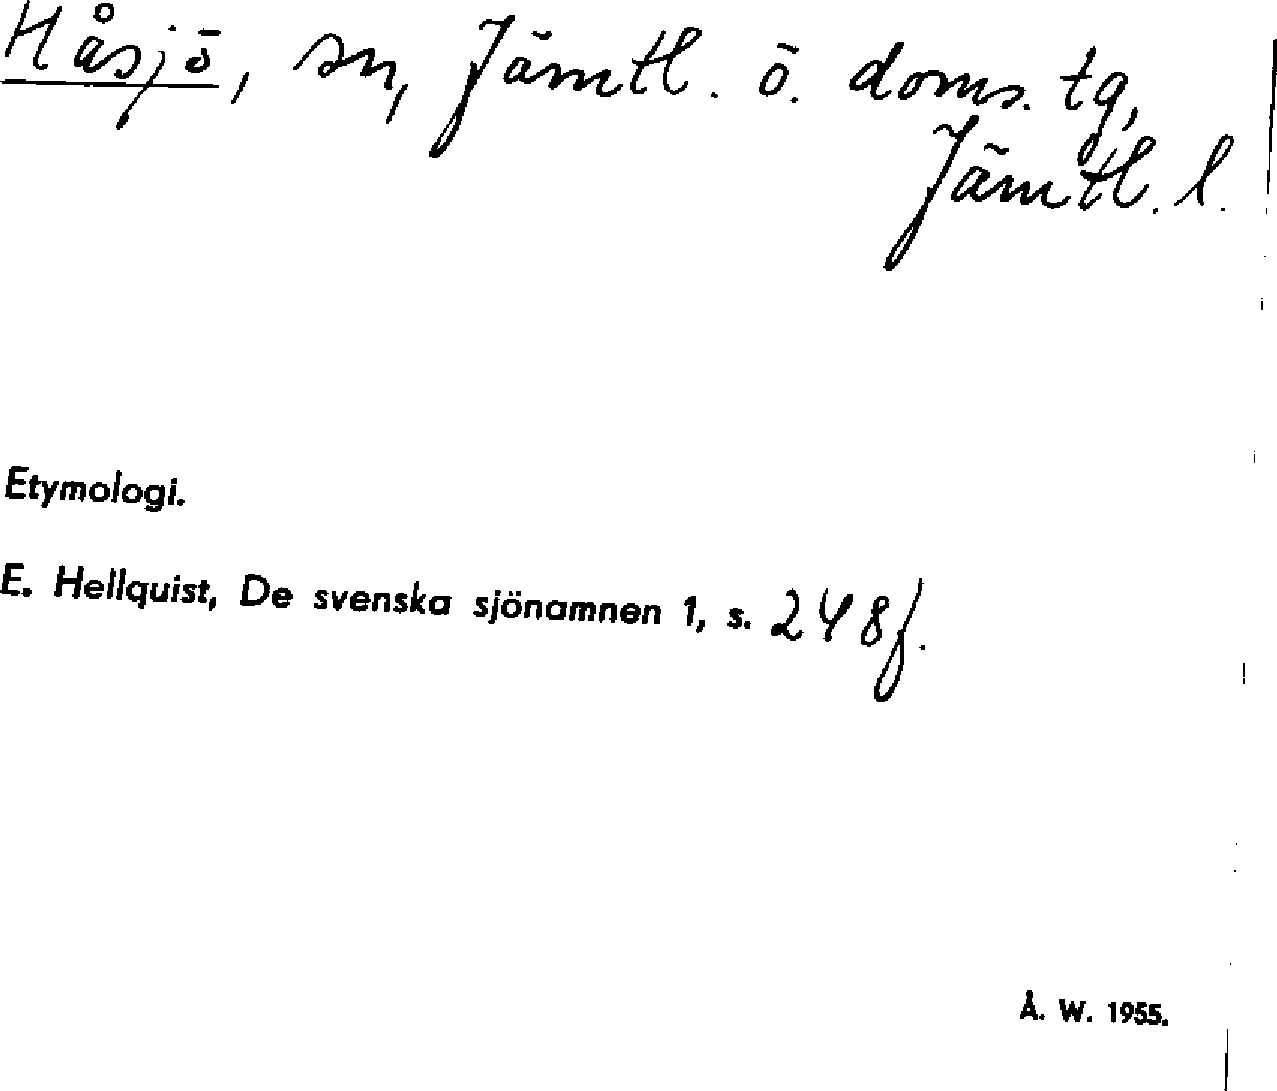 Håsjö, sn, Jämtl. ö. doms. tg,
Jämtl. l.
Etymologi.
E. Hellquist, De svenska sjönamnen 1, s. 248f.
Å. W. 1955.